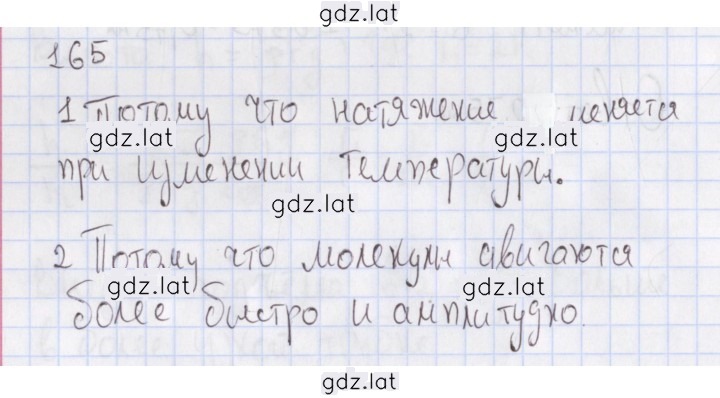 gdz.lat
165
1 Потому что натяжение меняется
gdz.lat
при изменении температуры.
gdz.lat
2 Потому что молекулы двигаются
gdz.lat
gdz.lat
более быстро и амплитудно.
gdz.lat